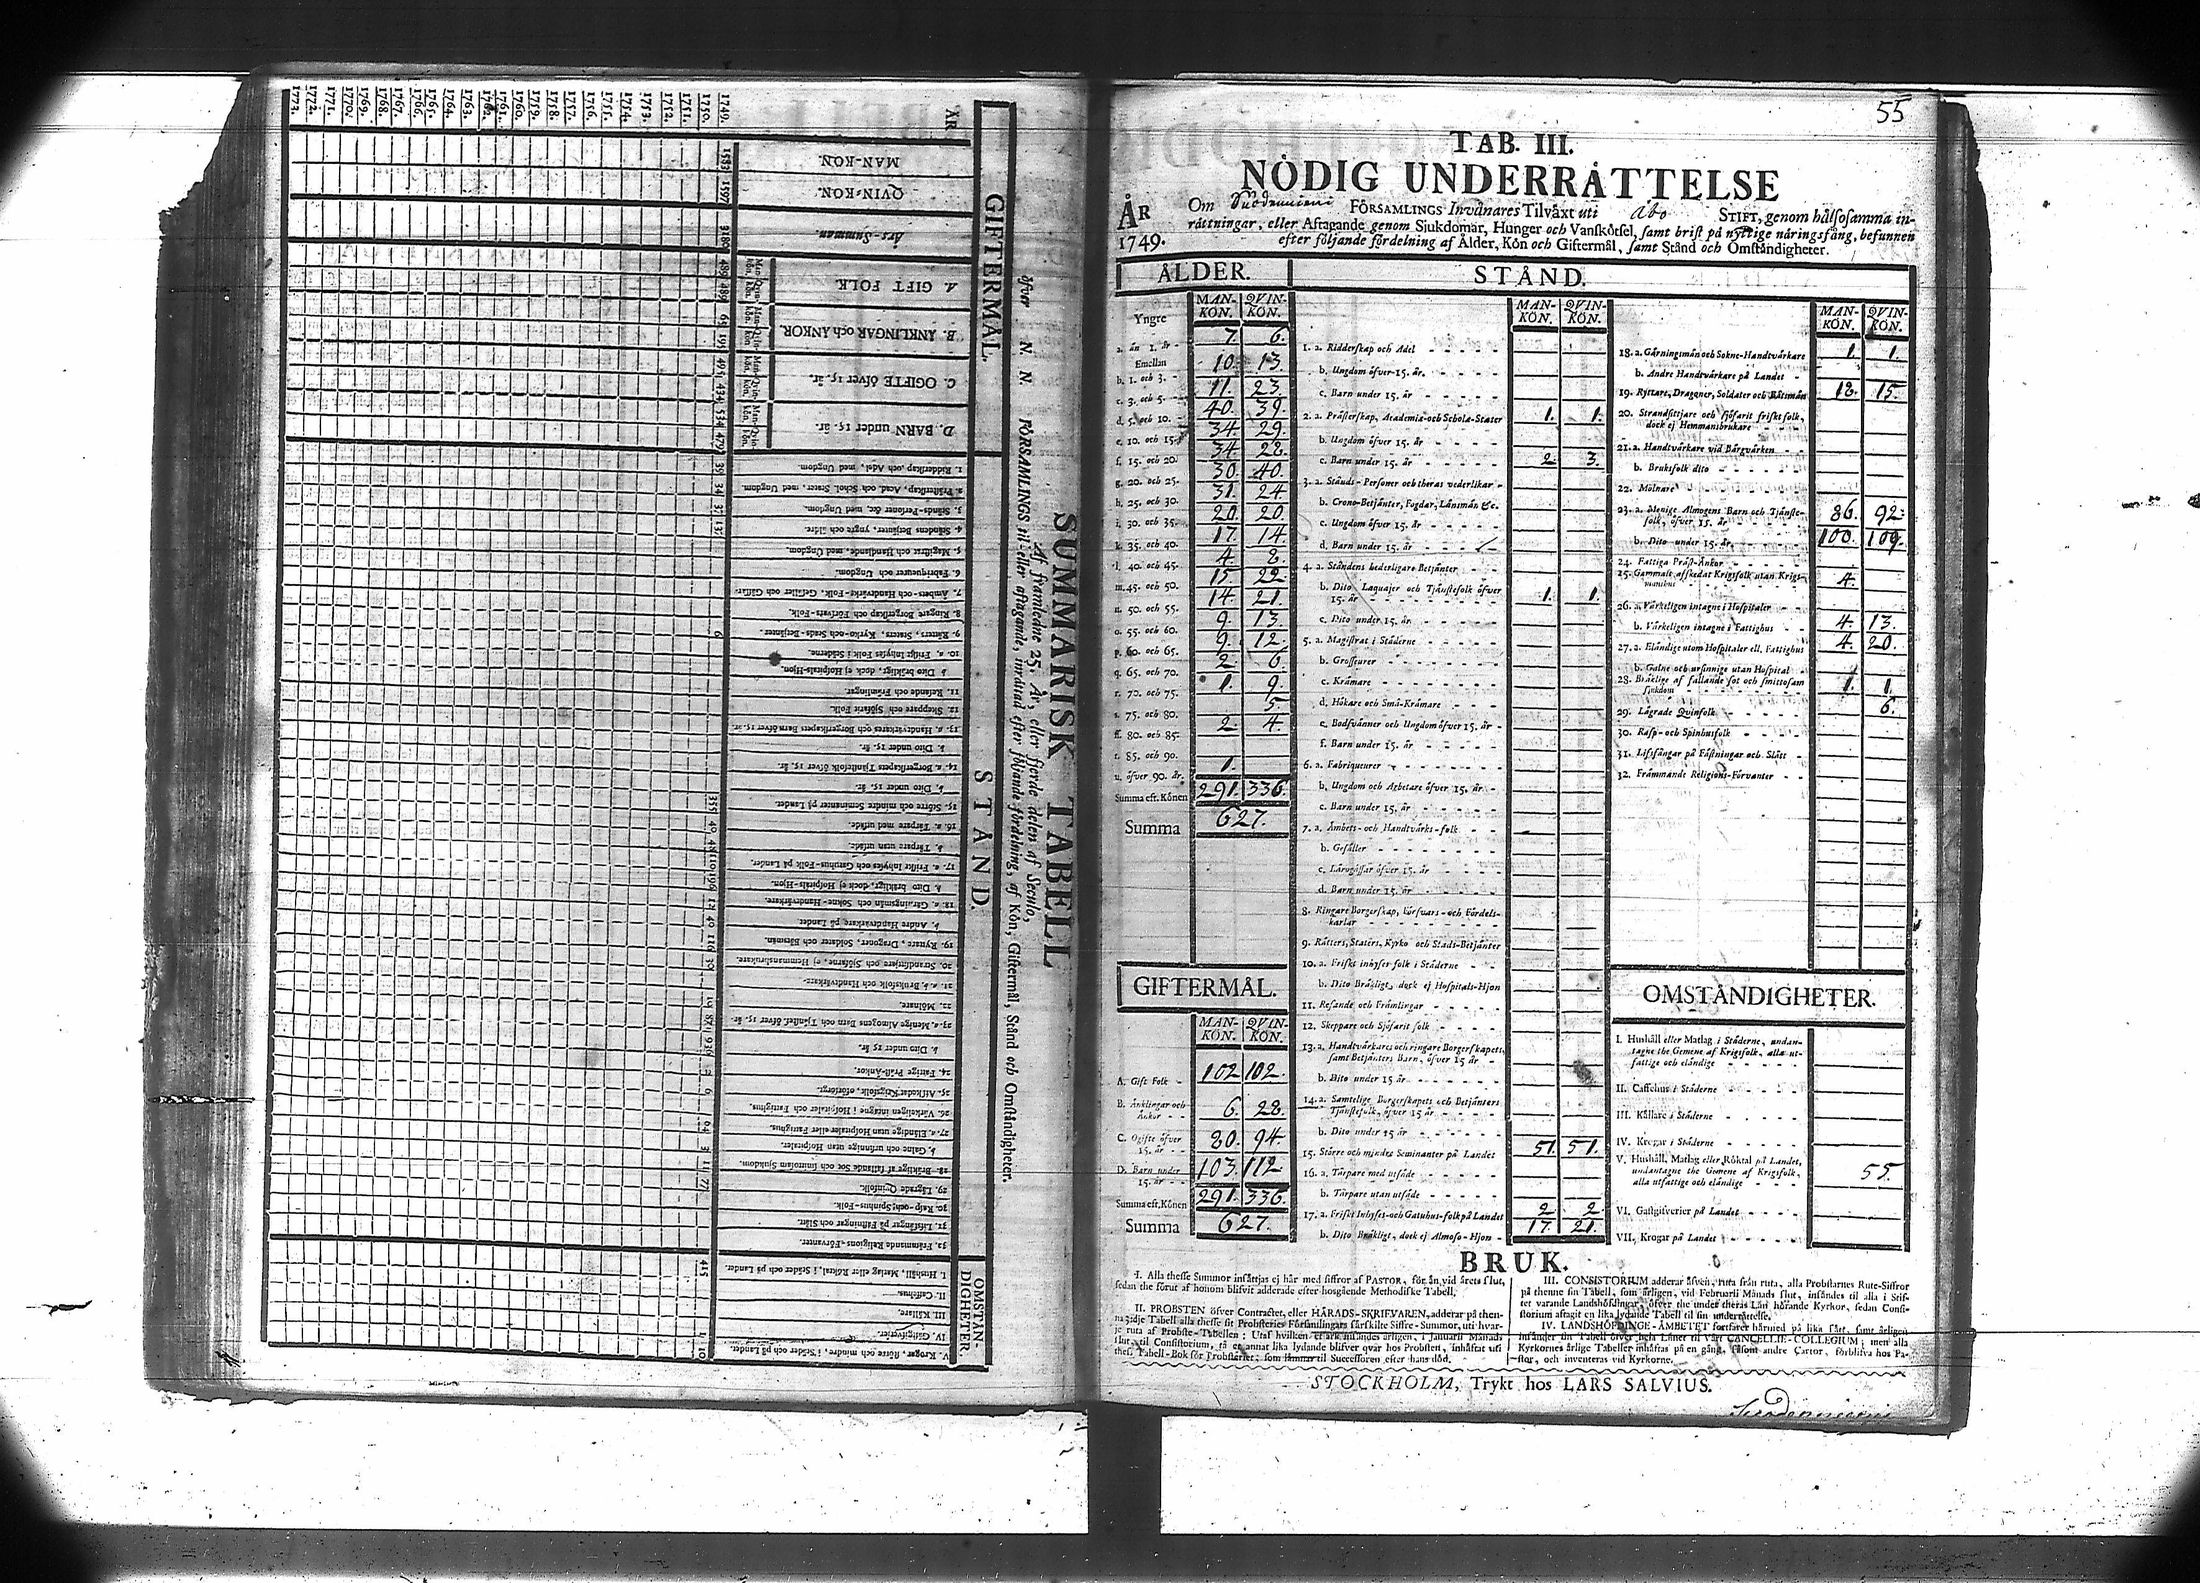 SUMMARISK TABELL
Af framledne 25. År, eller fjerde delen af Seculo,
öfver N. N. FÖRSAMLINGS til- eller aftagande, inrättad efter följande fördelning, af Kön, Giftermål, Stånd och Omständigheter.
GIFTERMÅL.
STÅND.
OMSTÄNDIGHETER.
ÅR
MAN-KÖN.
QVIN-KÖN.
Års-Summan.
A. GIFT FOLK.
B. ÄNKLINGAR och ÄNKOR.
C. OGIFTE öfver 15. år.
D. BARN under 15. år.
1. Ridderskap och Adel, med Ungdom.
2. Prästerskap, Acad. och Schol. Stater, med Ungdom.
3. Stånds-Personer &c. med Ungdom.
4. Ståndens Betjänter, yngre och äldre.
5. Magistrat och Handlande, med Ungdom.
6. Fabriqueurer och Ungdom.
7. Ämbets- och Handtvärks-Folk, Gesäller och Gåssar.
8. Ringare Borgerskap och Förlovs-Folk.
9. Rätters, Staters, Kyrko- och Stads-Betjänter.
10. a. Friskt Inhyses Folk i Städerne.
b. Dito bräkligt, dock ej Hospitals-Hjon.
11. Resande och Främlingar.
12. Skeppare och Sjöfarit Folk.
13. a. Handtvärkares och Borgerskapets Barn öfver 15. år.
b. Dito under 15. år.
14. a. Borgerskapets Tjänstefolk öfver 15. år.
b. Dito under 15. år.
15. Större och mindre Seminanter på Landet.
16. a. Tårpare med utsäde.
b. Tårpare utan utsäde.
17. a. Friskt Inhyses och Gatuhus-Folk på Landet.
b. Dito bräkligt, dock ej Hospitals-Hjon.
18. a. Gärningsmän och Sokne-Handtvärkare.
b. Andre Handtvärkare på Landet.
19. Ryttare, Dragoner, Soldater och Båtsmän.
20. Strandsittjare och Sjöfarne, ej Hemmansbrukare.
21. a. b. Bruksfolk och Handtvärkare.
22. Mölnare.
23. a. Menige Almogens Barn och Tjänstef. öfver 15. år.
b. Dito under 15. år.
24. Fattige Präst-Änkor.
25. Afskedat Krigsfolk, oförsörgt.
26. Värkeligen intagne i Hospitaler och Fattighus.
27. a. Elände utan Hospitaler eller Fattighus.
b. Galne och ursinnige utan Hospitaler.
28. Bräklige af fallande Sot och smittosam Sjukdom.
29. Lägrade Qvinfolk.
30. Rasp- och Spinhus-Folk.
31. Lifsfångar på Fästningar och Slått.
32. Främmande Religions-Förvanter.
I. Hushåll, Matlag eller Röktal, i Städer och på Landet.
II. Caffehus.
III. Källare.
IV. Gästgifverier.
V. Krogar, större och mindre, i Städer och på Landet.
1749.
1750.
1751.
1752.
1753.
1754.
1755.
1756.
1757.
1758.
1759.
1760.
1761.
1762.
1763.
1764.
1765.
1766.
1767.
1768.
1769.
1770.
1771.
1772.
1773.
55
TAB. III.
NÖDIG UNDERRÄTTELSE
ÅR
1749.
Om Suodenniemi FÖRSAMLINGS Invånares Tilväxt uti Åbo STIFT, genom hälsosamma in-
rättningar, eller Aftagande genom Sjukdomar, Hunger och Vanskötsel, samt brist på nyttige näringsfång, befunnen
efter följande fördelning af Ålder, Kön och Giftermål, samt Stånd och Omständigheter.
ÅLDER.
MAN-KÖN. QVIN-KÖN.
Yngre
a. än 1. år - 7. 6.
Emellan
b. 1. och 3. - 10. 13.
c. 3. och 5. - 11. 23.
d. 5. och 10. - 40. 39.
e. 10. och 15. 34. 29.
f. 15. och 20. 34. 28.
g. 20. och 25. 30. 40.
h. 25. och 30. 31. 24
i. 30. och 35. 20 20
k. 35. och 40. 17. 14
l. 40. och 45. 4. 8.
m. 45. och 50. 15. 22
n. 50. och 55. 14. 21.
o. 55. och 60. 9. 13.
p. 60. och 65. 9. 12.
q. 65. och 70. 2. 6.
r. 70. och 75. 1. 9.
s. 75. och 80. 5.
ss. 80. och 85. 2. 4.
t. 85. och 90.
u. öfver 90. år. 1.
Summa eft. Könen 291. 336.
Summa 627.
GIFTERMÅL.
MAN-KÖN. QVIN-KÖN.
A. Gift Folk - 102 102.
B. Änklingar och Änkor - 6. 28.
C. Ogifte öfver 15. år - 80. 94.
D. Barn under 15. år - 103. 112
Summa eft. Könen 291. 336.
Summa 627.
STÅND.
MAN-KÖN. QVIN-KÖN.
1. a. Ridderskap och Adel
b. Ungdom öfver 15. år.
c. Barn under 15. år
2. a. Prästerskap, Academiæ och Scholæ-Stater 1. 1.
b. Ungdom öfver 15. år
c. Barn under 15. år 2. 3.
3. a. Stånds-Personer och theras vederlikar
b. Crono-Betjänter, Fogdar, Länsmän &c.
c. Ungdom öfver 15. år
d. Barn under 15. år
4. a. Ståndens hederligare Betjänter
b. Dito Laquajer och Tjänstefolk öfver 15. år 1. 1.
c. Dito under 15. år.
5. a. Magistrat i Städerne
b. Grosseurer
c. Krämare
d. Hökare och Små-Krämare
e. Bodsvänner och Ungdom öfver 15. år
f. Barn under 15. år
6. a. Fabriqueurer
b. Ungdom och Arbetare öfver 15. år
c. Barn under 15. år
7. a. Ämbets- och Handtvärks-folk
b. Gesäller
c. Lärogåssar öfver 15. år
d. Barn under 15. år
8. Ringare Borgerskap, Försvars- och Fördels-karlar
9. Rätters, Staters, Kyrko och Stads-Betjänter
10. a. Friskt inhyses folk i Städerne
b. Dito Bräkligt, dock ej Hospitals-Hjon
11. Resande och Främlingar
12. Skeppare och Sjöfarit folk
13. a. Handtvärkares och ringare Borgerskapets, samt Betjänters Barn, öfver 15 år
b. Dito under 15 år
14. a. Samtelige Borgerskapets och Betjänters Tjänstefolk, öfver 15 år
b. Dito under 15 år
15. Större och mindre Seminanter på Landet 51. 51.
16. a. Tårpare med utsäde
b. Tårpare utan utsäde
17. a. Friskt Inhyses- och Gatuhus-folk på Landet 2. 2.
b. Dito Bräkligt, dock ej Almoso-Hjon 17. 21.
MAN-KÖN. QVIN-KÖN.
18. a. Gärningsmän och Sokne-Handtvärkare 1. 1.
b. Andre Handtvärkare på Landet
19. Ryttare, Dragoner, Soldater och Båtsmän 18. 15.
20. Strandsittjare och sjöfarit friskt folk, dock ej Hemmansbrukare
21. a. Handtvärkare vid Bärgvärken
b. Bruksfolk dito
22. Mölnare
23. a. Menige Almogens Barn och Tjänstefolk, öfver 15. år 86. 92.
b. Dito under 15. år 100. 109.
24. Fattiga Präst-Änkor
25. Gammalt afskedat Krigsfolk utan Krigsmanshus 4.
26. a. Värkeligen intagne i Hospitaler
b. Värkeligen intagne i Fattighus 4. 13.
27. a. Eländige utom Hospitaler ell. Fattighus 4. 20.
b. Galne och ursinnige utan Hospital
28. Bräklige af fallande sot och smittosam sjukdom 1. 1.
29. Lägrade Qvinfolk 6.
30. Rasp- och Spinhusfolk
31. Lifsfångar på Fästningar och Slått
32. Främmande Religions-Förvanter
OMSTÄNDIGHETER.
I. Hushåll eller Matlag i Städerne, undan-
tagne the Gemene af Krigsfolk, alla ut-
fattige och eländige
II. Caffehus i Städerne
III. Källare i Städerne
IV. Krogar i Städerne
V. Hushåll, Matlag eller Röktal på Landet,
undantagne the Gemene af Krigsfolk,
alla utfattige och eländige 55.
VI. Gästgifverier på Landet
VII. Krogar på Landet
BRUK.
I. Alla thesse Summor insättjas ej här med siffror af PASTOR, för än vid årets slut,
sedan the förut af honom blifvit adderade efter hosgående Methodiske Tabell.
II. PROBSTEN öfver Contractet, eller HÄRADS-SKRIFVAREN, adderar på then-
na 3:dje Tabell alla thesse sit Probsteries Församlingars särskilte Siffre-Summor, uti hvar-
je ruta af Probste-Tabellen: Utaf hvilken et ark insändes årligen, i Januarii Månads
slut, til Consistorium, så et annat lika lydande blifver qvar hos Probsten, inhäftat uti
thess Tabell-Bok för Probsteriet, som lämnar til Successoren efter hans död.
III. CONSISTORIUM adderar äfven, ruta från ruta, alla Probstarnes Rute-Siffror
på thenne sin Tabell, som årligen, vid Februarii Månads slut, insändes til alla i Stif-
tet varande Landshöfdingar, öfver the under theras Län hörande Kyrkor, sedan Consi-
storium aftagit en lika lydande Tabell til sin underrättelse.
IV. LANDSHÖFDINGE-ÄMBETET fortfarer härmed på lika sätt, samt årligen
insänder sin Tabell öfver hela Länet til Vårt CANCELLIE-COLLEGIUM; men alla
Kyrkornes årlige Tabeller inhäftas på en gång, såsom andre Cartor, förblifva hos Pa-
stor, och inventeras vid Kyrkorne.
STOCKHOLM, Trykt hos LARS SALVIUS.
Suodenniemi